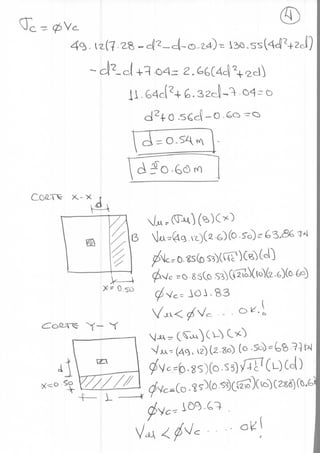 4
Jc = ϕVc
49.12(7.28 - d² - d - 0.24) = 130.55(4d² + 2d)
-d² - d + 7.04 = 2.66(4d² + 2d)
11.64d² + 6.32d - 7.04 = 0
d² + 0.56d - 0.60 = 0
d = 0.54 m
d ≅ 0.60 m
CORTE X-X
d
B
X = 0.50
Vu = (σu)(B)(X)
Vu = (49.12)(2.6)(0.50) = 63.86 TN
ϕVc = 0.85(0.53)(√f'c)(B)(d)
ϕVc = 0.85(0.53)(√210)(10)(2.6)(0.60)
ϕVc = 101.83
Vu < ϕVc .... OK!
CORTE Y-Y
d
X = 0.50
L
Vu = (σu)(L)(X)
Vu = (49.12)(2.80)(0.50) = 68.77 TN
ϕVc = (0.85)(0.53)√f'c (L)(d)
ϕVc = (0.85)(0.53)(√210)(10)(2.80)(0.6
ϕVc = 109.67
Vu < ϕVc .... OK!